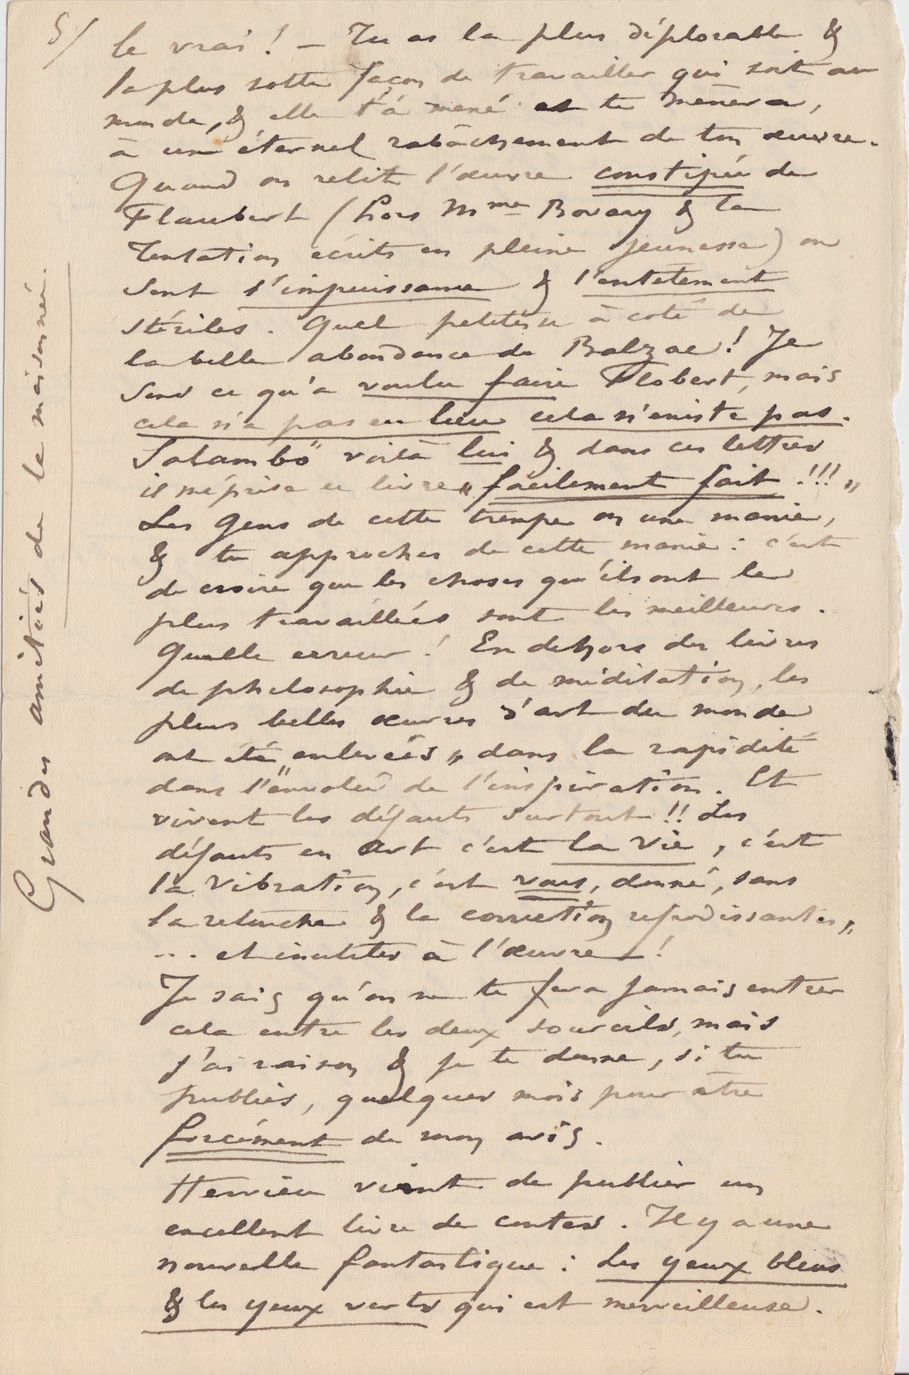 5/
le vrai ! – Tu as la plus déplorable &
la plus sotte façon de travailler qui soit au
monde, & elle t'à mené et te mènera,
à un éternel rabâchement de ton œuvre.
Quand on relit l'œuvre constipée de
Flaubert (hors Mme Bovary & la
Tentation écrits en pleine jeunesse) on
sent l'impuissance & l'entêtement
stériles. Quel petit à coté de
la belle abondance de Balzac ! Je
sens ce qu'a voulu faire Flobert, mais
cela n'a pas eu lieu cela n'existe pas.
Salambô" voilà lui & dans ces lettres
il méprise ce livre „facilement fait !!! „
Les gens de cette trempe on une manie,
& tu approches de cette manie : c'est
de croire que les choses qu'ils ont le
plus travaillées sont les meilleures.
Quelle erreur ! En dehors des livres
de philosophie & de méditation, les
plus belles œuvres d'art du monde
ont été „enlevées„ dans la rapidité
dans l'envolée de l'inspiration. Et
vivent les défauts surtout !! Les
défauts en Art c'est la vie, c'est
la vibration, c'est vous, donné, sans
la retouche & la correction refroidissantes„
... et inutiles à l'œuvre !
Je sais qu'on ne te fera jamais entrer
cela entre les deux sourcils, mais
j'ai raison & je te donne, si tu
publies, quelques mois pour être
forcément de mon avis.
Hervieu vient de publier un
excellent livre de contes. Il y a une
nouvelle fantastique : Les yeux bleus
& les yeux verts qui est merveilleuse.
Grandes amitiés de la maisonnée.